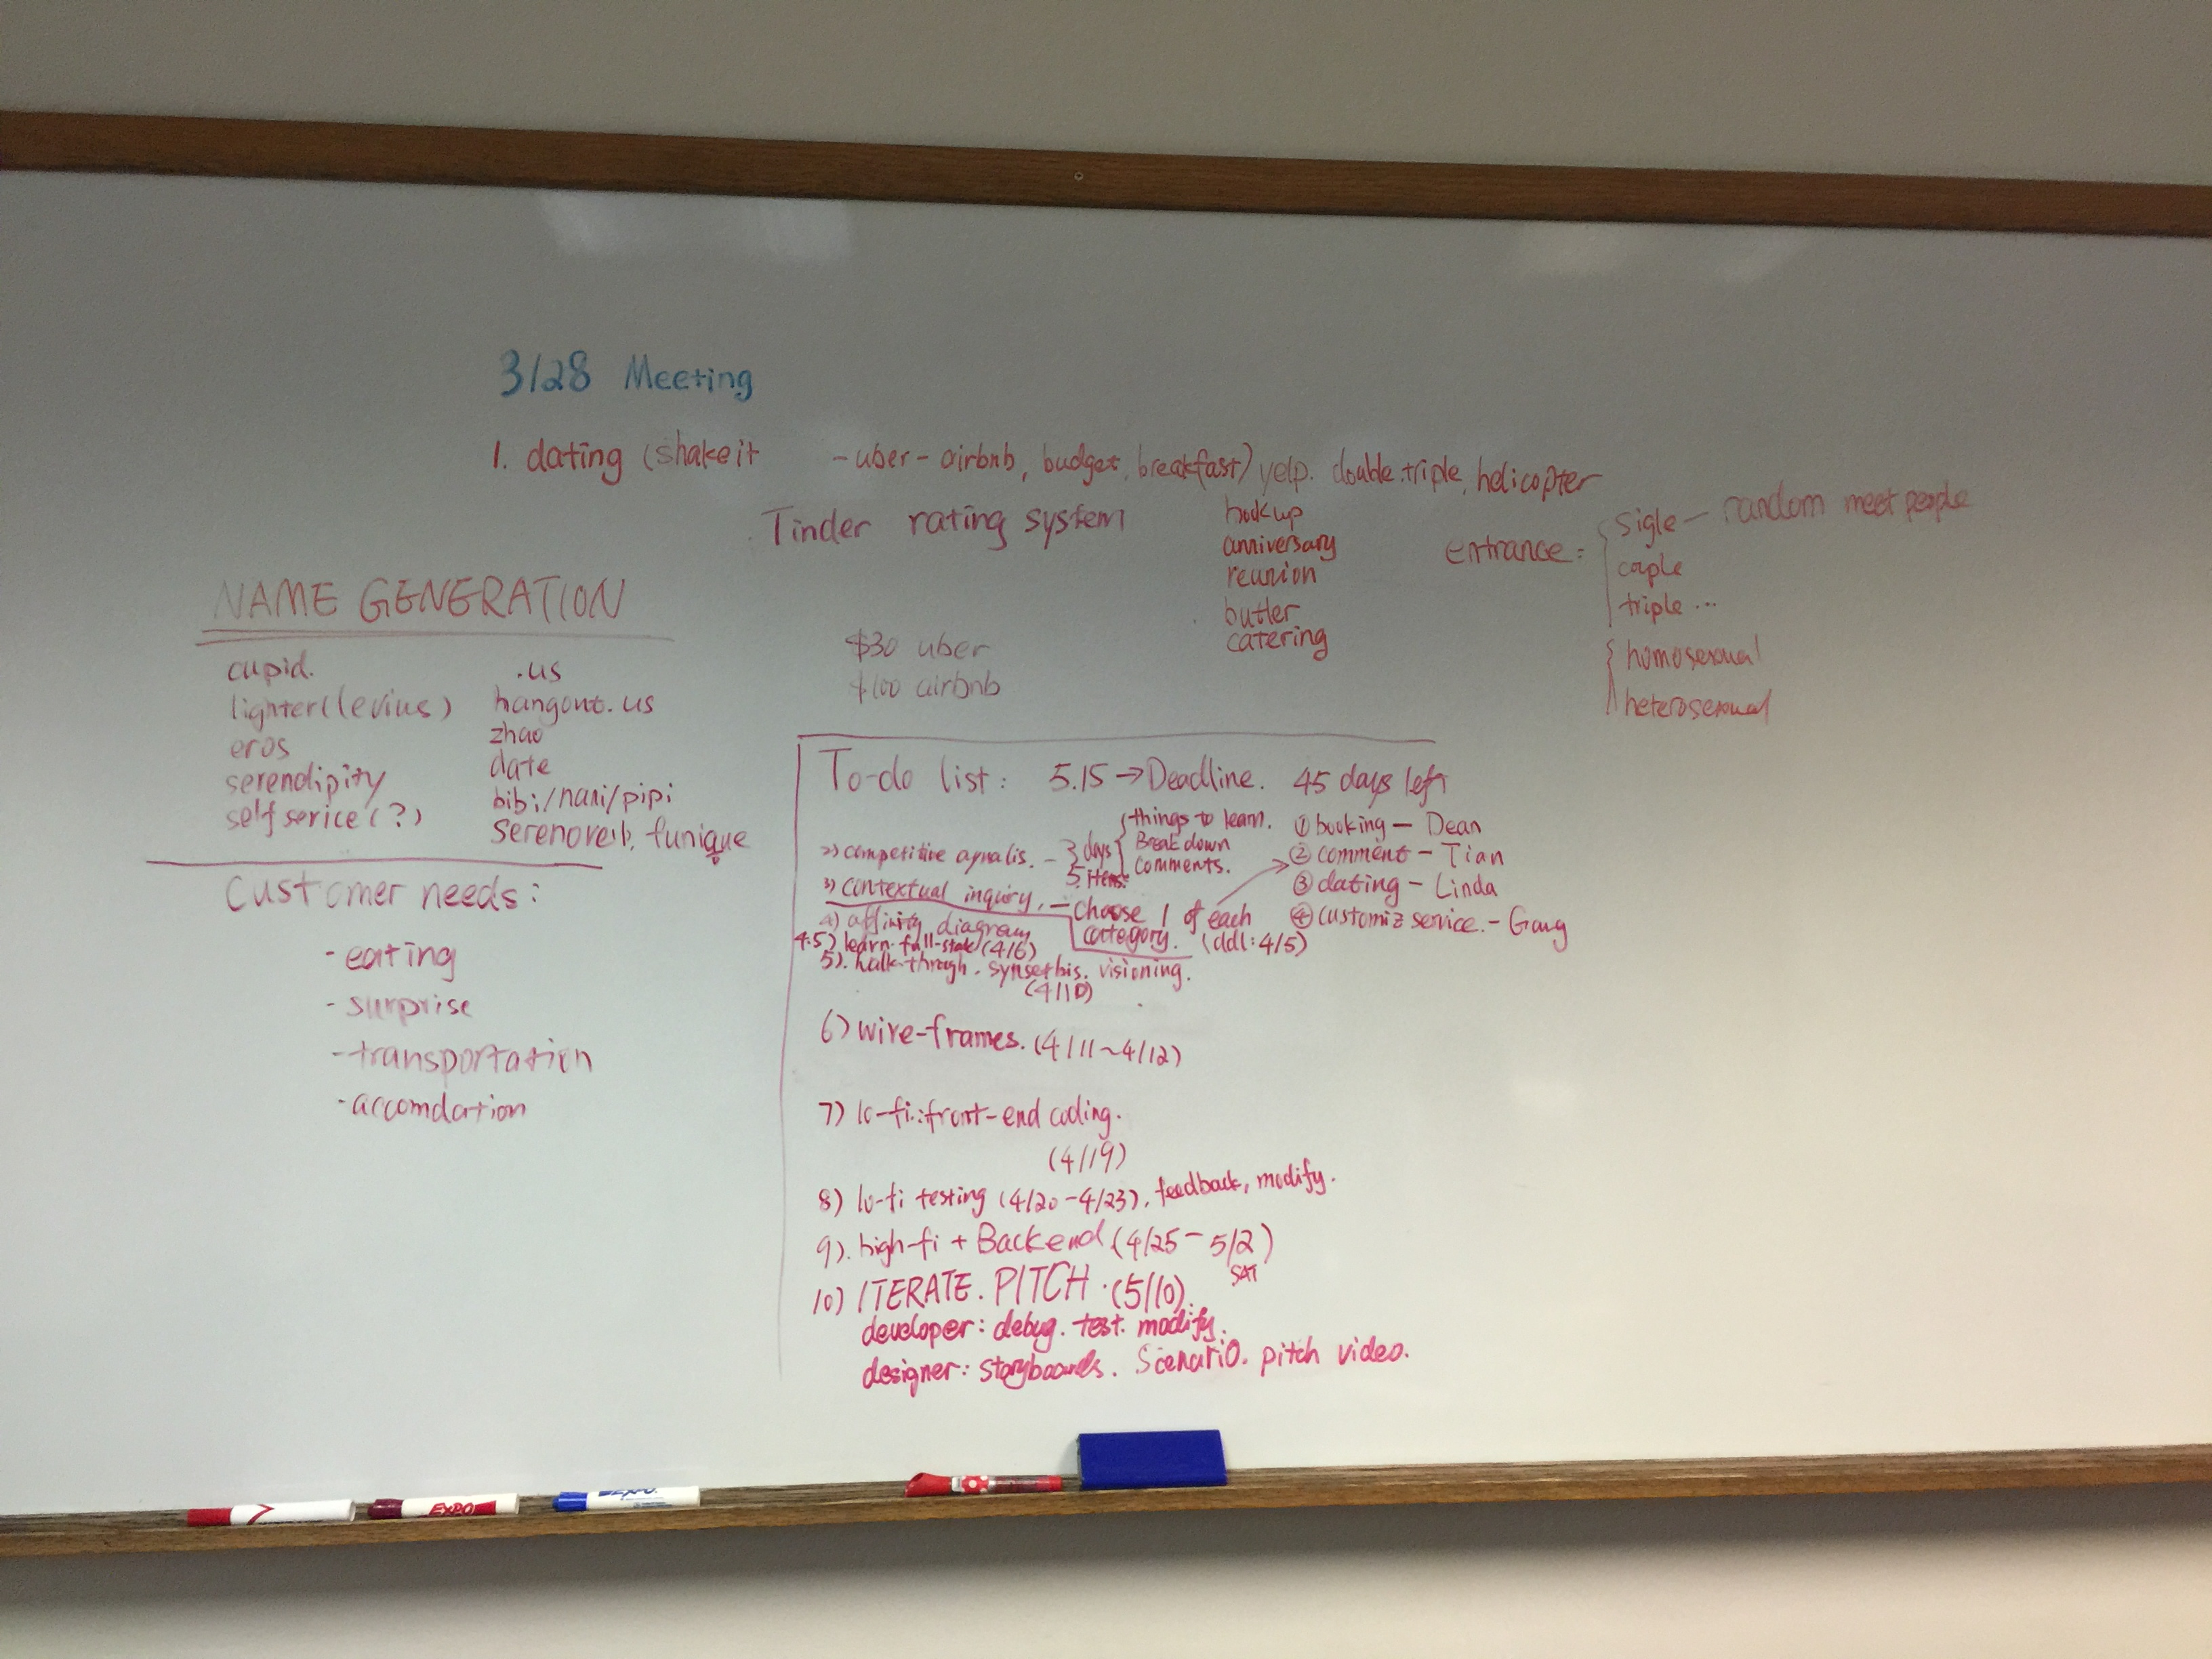 3/28 Meeting
1. dating (shake it - uber - airbnb, budget, breakfast) yelp. double. triple, helicopter
Tinder rating system
hookup
anniversary
reunion
butler
catering
entrance:
sigle - random meet people
cople
triple ...
homosexual
heterosexual
$30 uber
$100 airbnb
NAME GENERATION
cupid.
lighter (levius)
eros
serendipity
self serice (?)
.us
hangout.us
zhao
date
bibi/nani/pipi
funique
Customer needs:
- eating
- surprise
- transportation
- accomdation
To-do list: 5.15 → Deadline. 45 days left
2) competitive - 3 days
5 items
things to learn.
Break down
comments.
3) contextual inquiry. - choose 1 of each
category. (ddl: 4/5)
① booking - Dean
② comment - Tian
③ dating - Linda
④ customiz service. - Gang
4) affinity diagram
4.5) learn full-stack (4/6)
5). walk-through. visioning.
(4/10)
6) wire-frames. (4/11~4/12)
7) lo-fi: front-end coding.
(4/19)
8) lo-fi testing (4/20-4/23), feedback, modify.
9). high-fi + Backend (4/25-5/2)
SAT
10) ITERATE. PITCH. (5/10).
developer: debug. test. modify.
designer: storyboards. Scenario. pitch video.
EXPO
EXPO